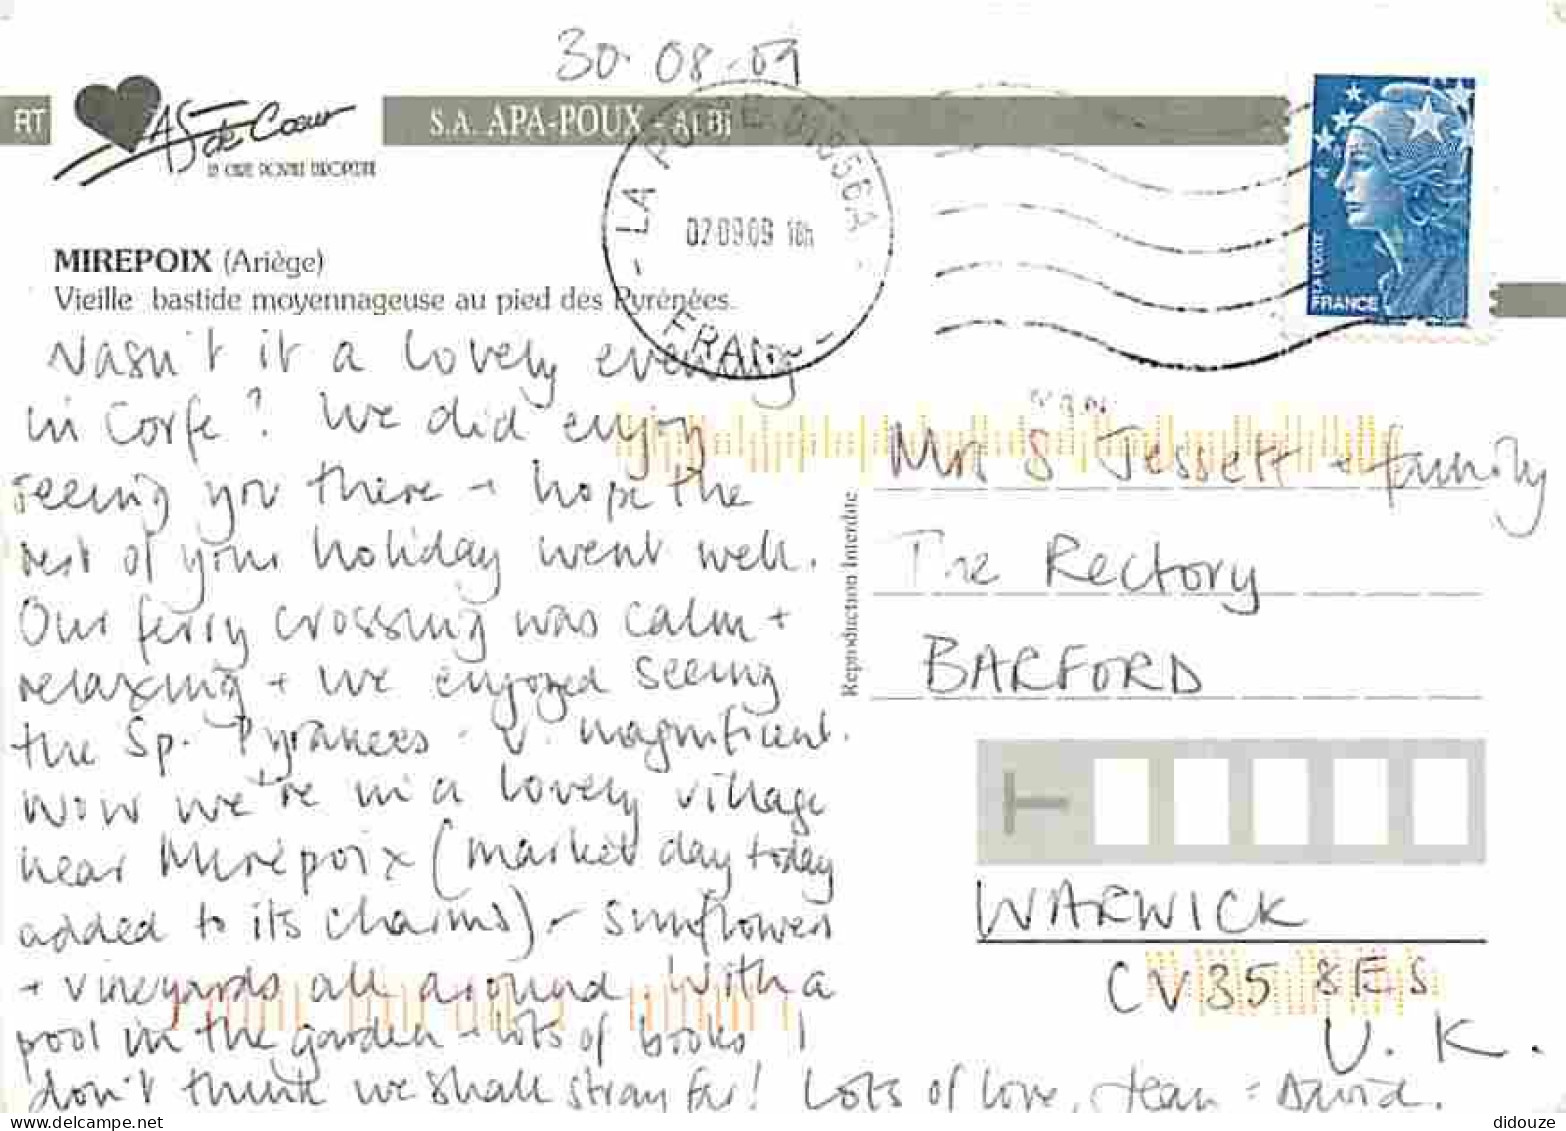 30.08.09
RT
As de Coeur
S.A. APA-POUX - ALBI
LA POSTE 00856A
02.09.09 18h
FRANCE
LA POSTE
FRANCE
MIREPOIX (Ariège)
Vieille bastide moyennageuse au pied des Pyrénées.
Wasn't it a lovely evening
in Corfe? We did enjoy
seeing you there + hope the
rest of your holiday went well.
Our ferry crossing was calm +
relaxing + we enjoyed seeing
the Sp. Pyranees - v. magnificent.
Now we're in a lovely village
near Mirepoix (market day today
added to its charms) - sunflowers
+ vineyards all around. With a
pool in the garden + lots of books I
don't think we shall stray far! Lots of love, Jean + David.
Reproduction Interdite
Mrs S Jessett + family
The Rectory
BARFORD
WARWICK
CV35 8ES
U.K.
didouze